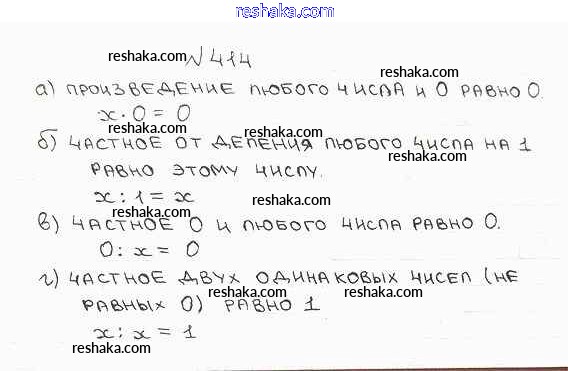 reshaka.com
reshaka.com
№414
reshaka.com
а) ПРОИЗВЕДЕНИЕ ЛЮБОГО ЧИСЛА И 0 РАВНО 0.
x · 0 = 0
reshaka.com
reshaka.com
б) ЧАСТНОЕ ОТ ДЕЛЕНИЯ ЛЮБОГО ЧИСЛА НА 1
reshaka.com
РАВНО ЭТОМУ ЧИСЛУ.
x : 1 = x
reshaka.com
reshaka.com
в) ЧАСТНОЕ 0 И ЛЮБОГО ЧИСЛА РАВНО 0.
0 : x = 0
reshaka.com
г) ЧАСТНОЕ ДВУХ ОДИНАКОВЫХ ЧИСЕЛ (НЕ
reshaka.com
reshaka.com
РАВНЫХ 0) РАВНО 1
x : x = 1
reshaka.com